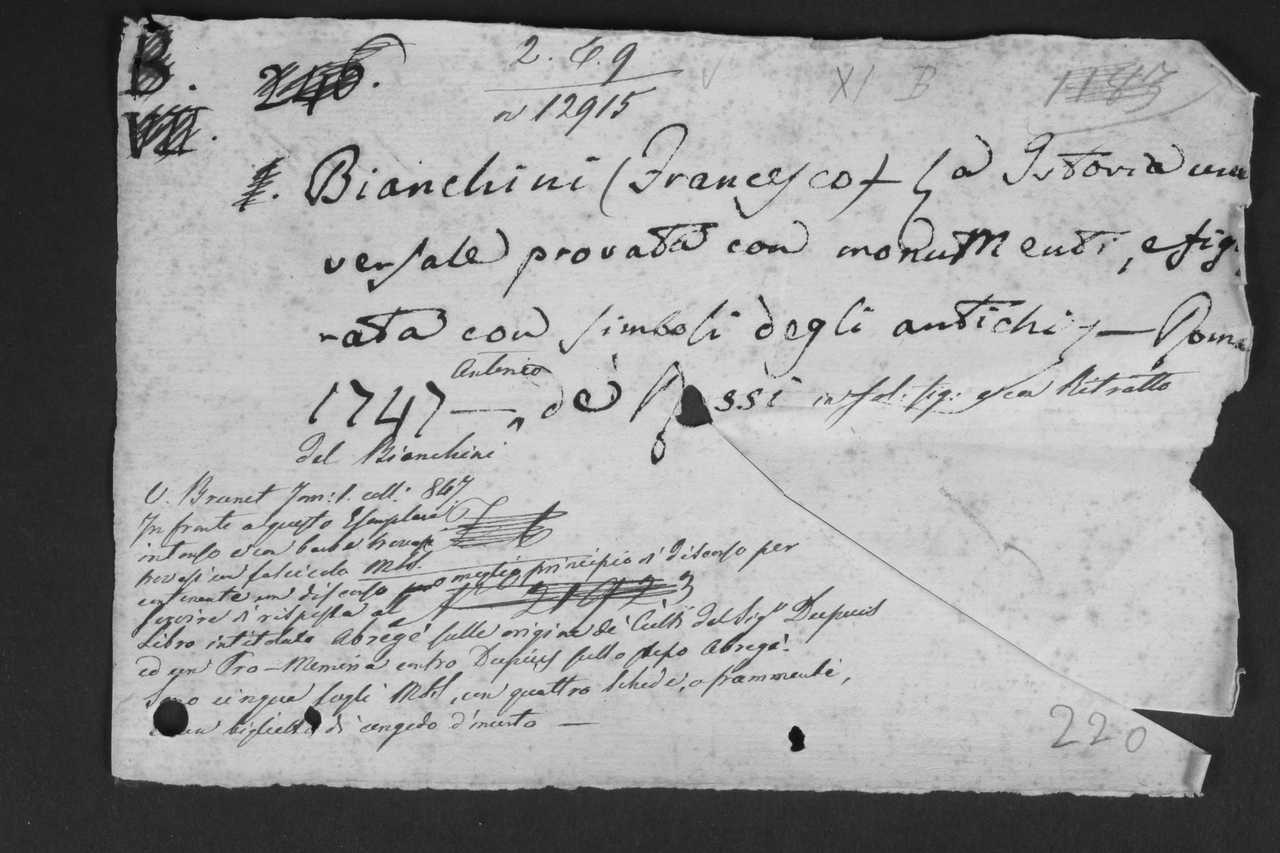 B. 2. E. 9 XI B 1183
VII. n 12915
Bianchini (Francesco) La Istoria uni
versale provata con monumenti, e figu
rata con simboli degli antichi — Roma
Antonio
1747 — de' Rossi in fol: fig: e con Ritratto
del Bianchini
V. Brunet Tom: 1. coll: 847
In fronte a questo Esemplare
intonso e con barbe
trovasi un fascicolo MSS.
contenente un discorso o meglio principio di discorso per
servire di risposta al
Libro intitolato Abregé sulle origine de' Culti del Sig.r Dupuis
ed un Pro-Memoria contro Dupuis sullo stesso Abregé.
Sono cinque fogli MSS, con quattro schede, o frammenti,
e un biglietto di congedo d'invito —
220